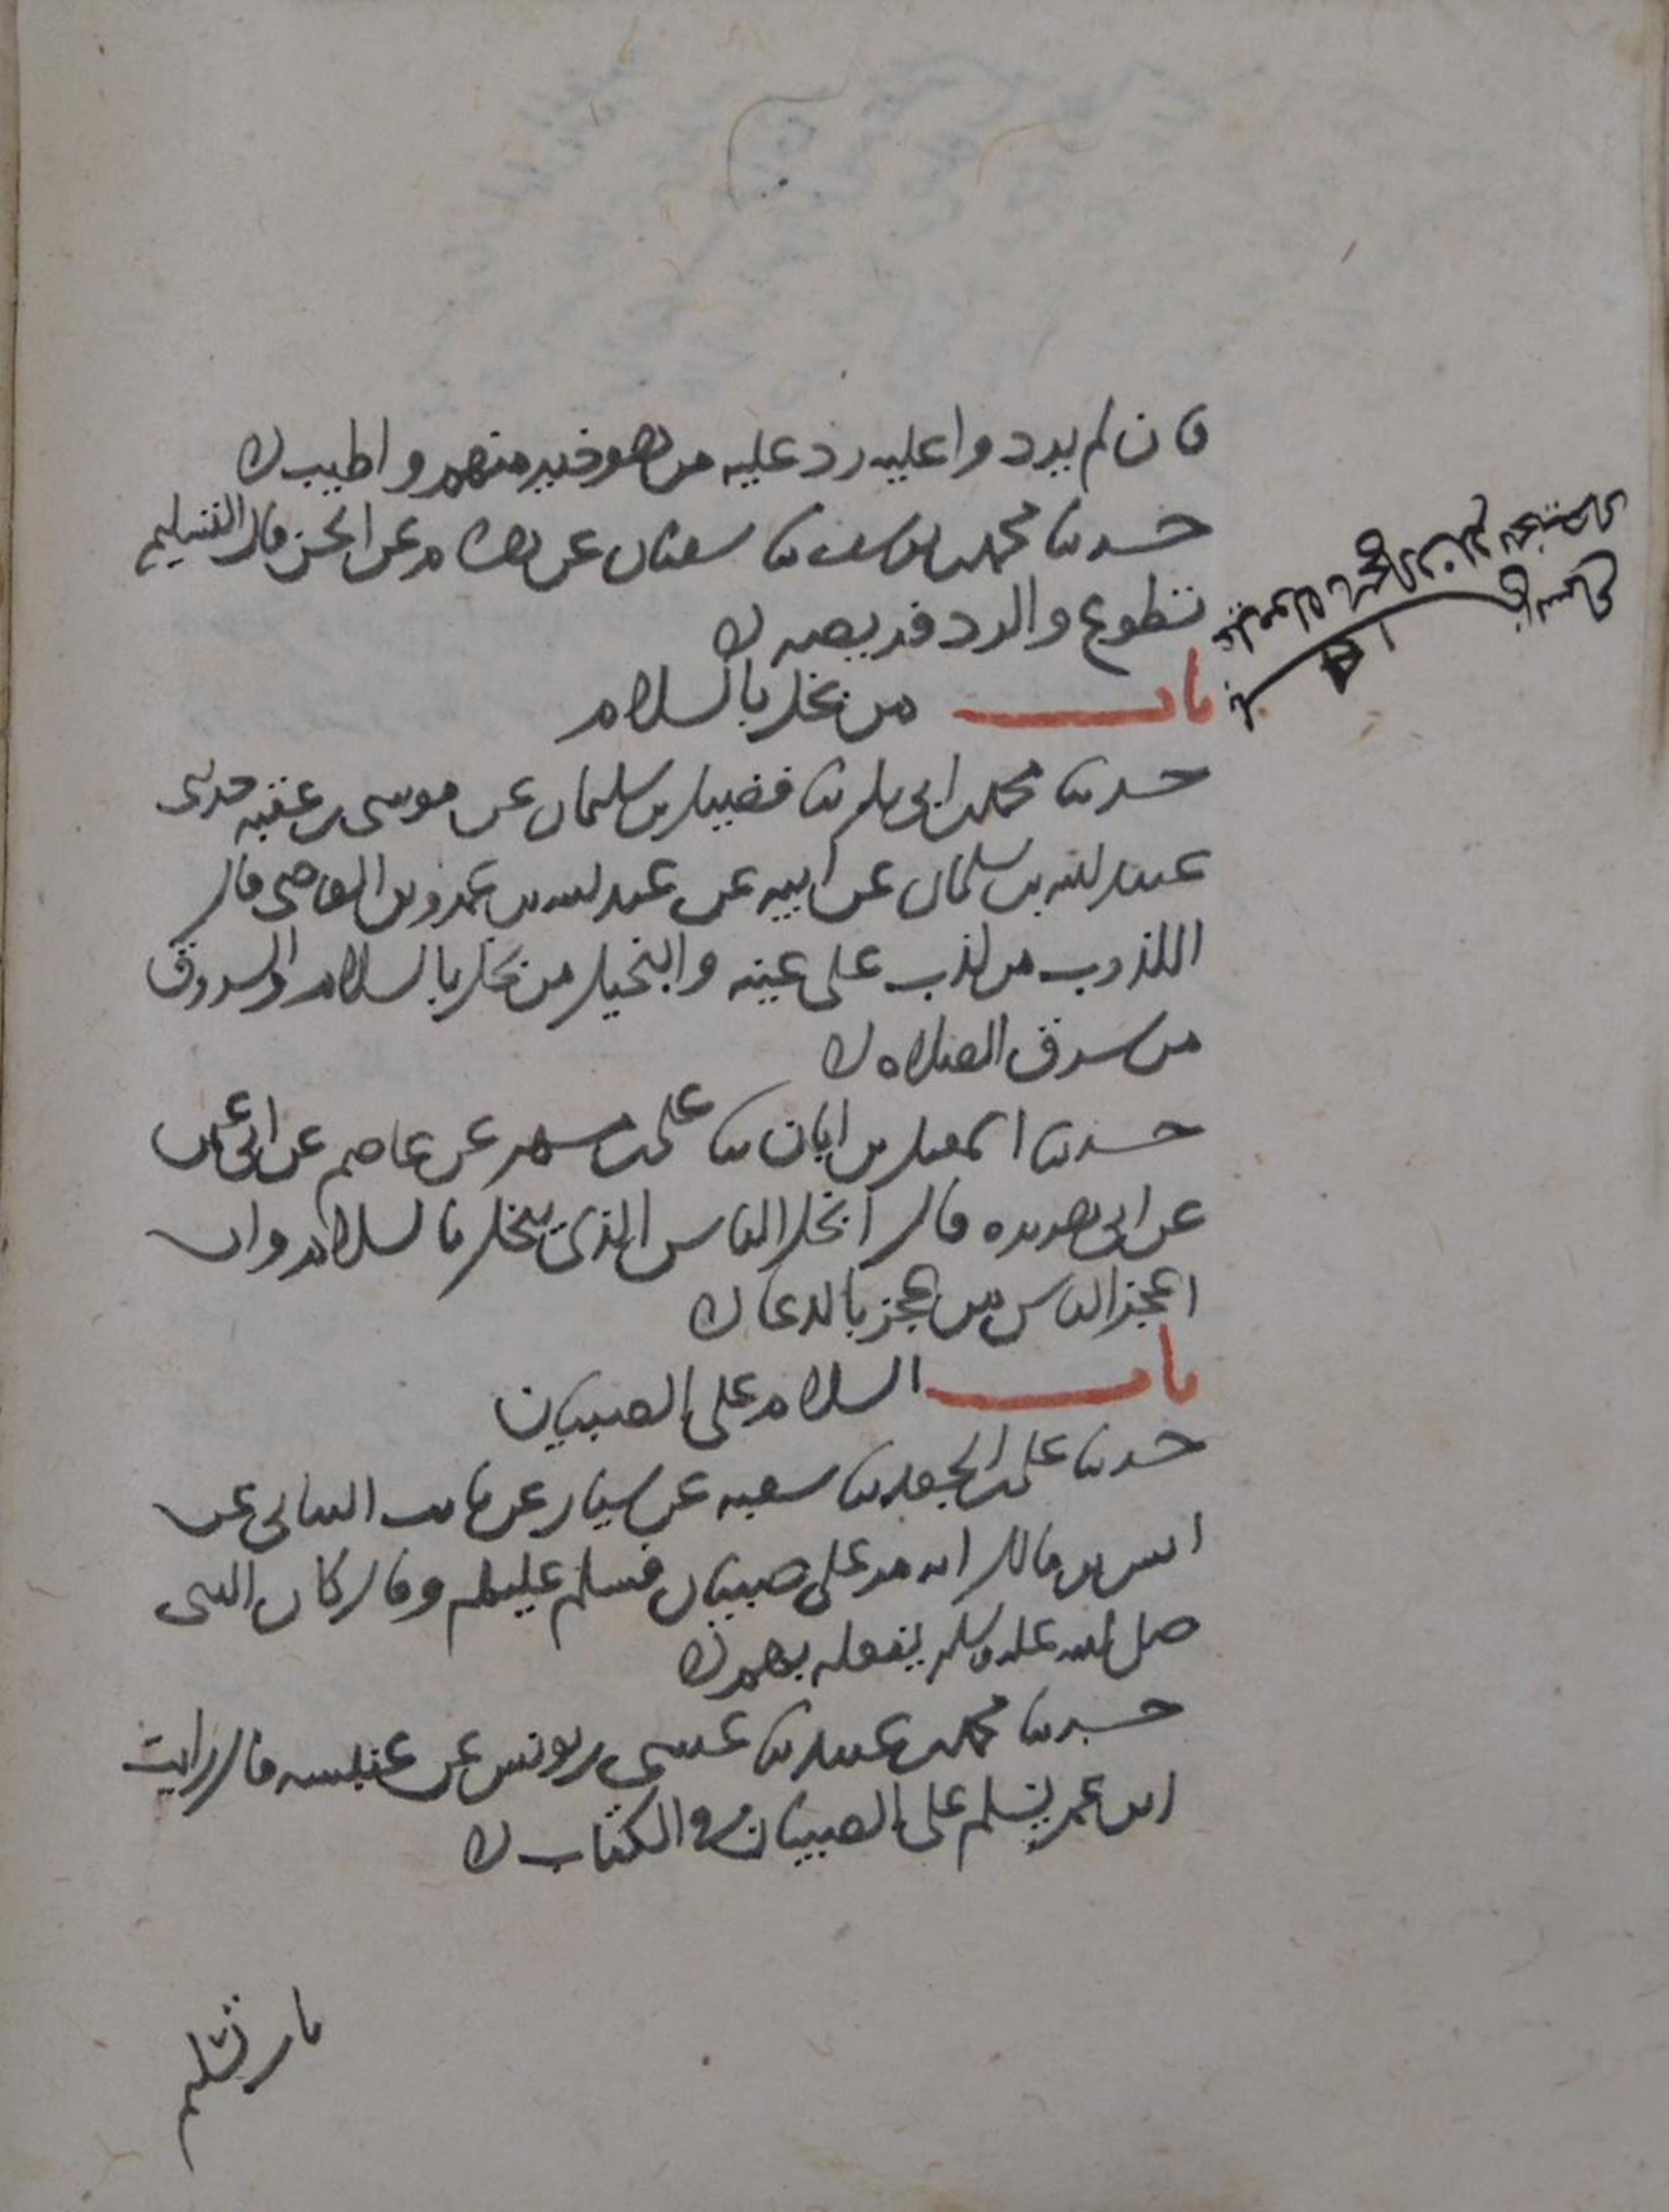 فان لم يردوا عليه رد عليه من هو خير منهم واطيب
حدثنا محمد بن يوسف ثنا سفيان عن هشام عن الحسن قال التسليم
تطوع والرد فريضه
باب من بخل بالسلام
حدثنا محمد بن ابي بكر ثنا فضيل بن سليمان عن موسى بن عقبه حدثني
عبيد الله بن سلمان عن ابيه عن عبد الله بن عمرو بن العاصي قال
الكذوب من كذب على يمينه والبخيل من بخل بالسلام والسروق
من سرق الصلاه
حدثنا اسمعيل بن ابان ثنا علي بن مسهر عن عاصم عن ابي عثمن
عن ابي هريره قال ابخل الناس الذي يبخل بالسلام وان
اعجز الناس من عجز بالدعا
باب السلام على الصبيان
حدثنا علي بن الجعد ثنا شعبه عن سيار عن ثابت البناني عن
انس بن مالك انه مر على صبيان فسلم عليهم وقال كان النبي
صلى الله عليه وسلم يفعله بهم
حدثنا محمد بن عبيد ثنا عيسى بن يونس عن عنبسه قال رايت
ابن عمر يسلم على الصبيان في الكتاب
باب تسليم